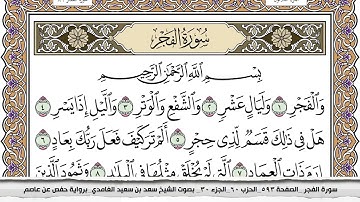 سُورَةُ الفَجْرِ
بِسْمِ اللَّهِ الرَّحْمَٰنِ الرَّحِيمِ
وَالْفَجْرِ ١ وَلَيَالٍ عَشْرٍ ٢ وَالشَّفْعِ وَالْوَتْرِ ٣ وَالَّيْلِ إِذَا يَسْرِ ٤
هَلْ فِي ذَٰلِكَ قَسَمٌ لِّذِي حِجْرٍ ٥ أَلَمْ تَرَ كَيْفَ فَعَلَ رَبُّكَ بِعَادٍ ٦
إِرَمَ ذَاتِ الْعِمَادِ ٧ الَّتِي لَمْ يُخْلَقْ مِثْلُهَا فِي الْبِلَادِ ٨ وَثَمُودَ الَّذِينَ
سورة الفجر _الصفحة ٥٩٣_ الحزب ٦٠_ الجزء ٣٠_ بصوت الشيخ سعد بن سعيد الغامدي_ برواية حفص عن عاصم